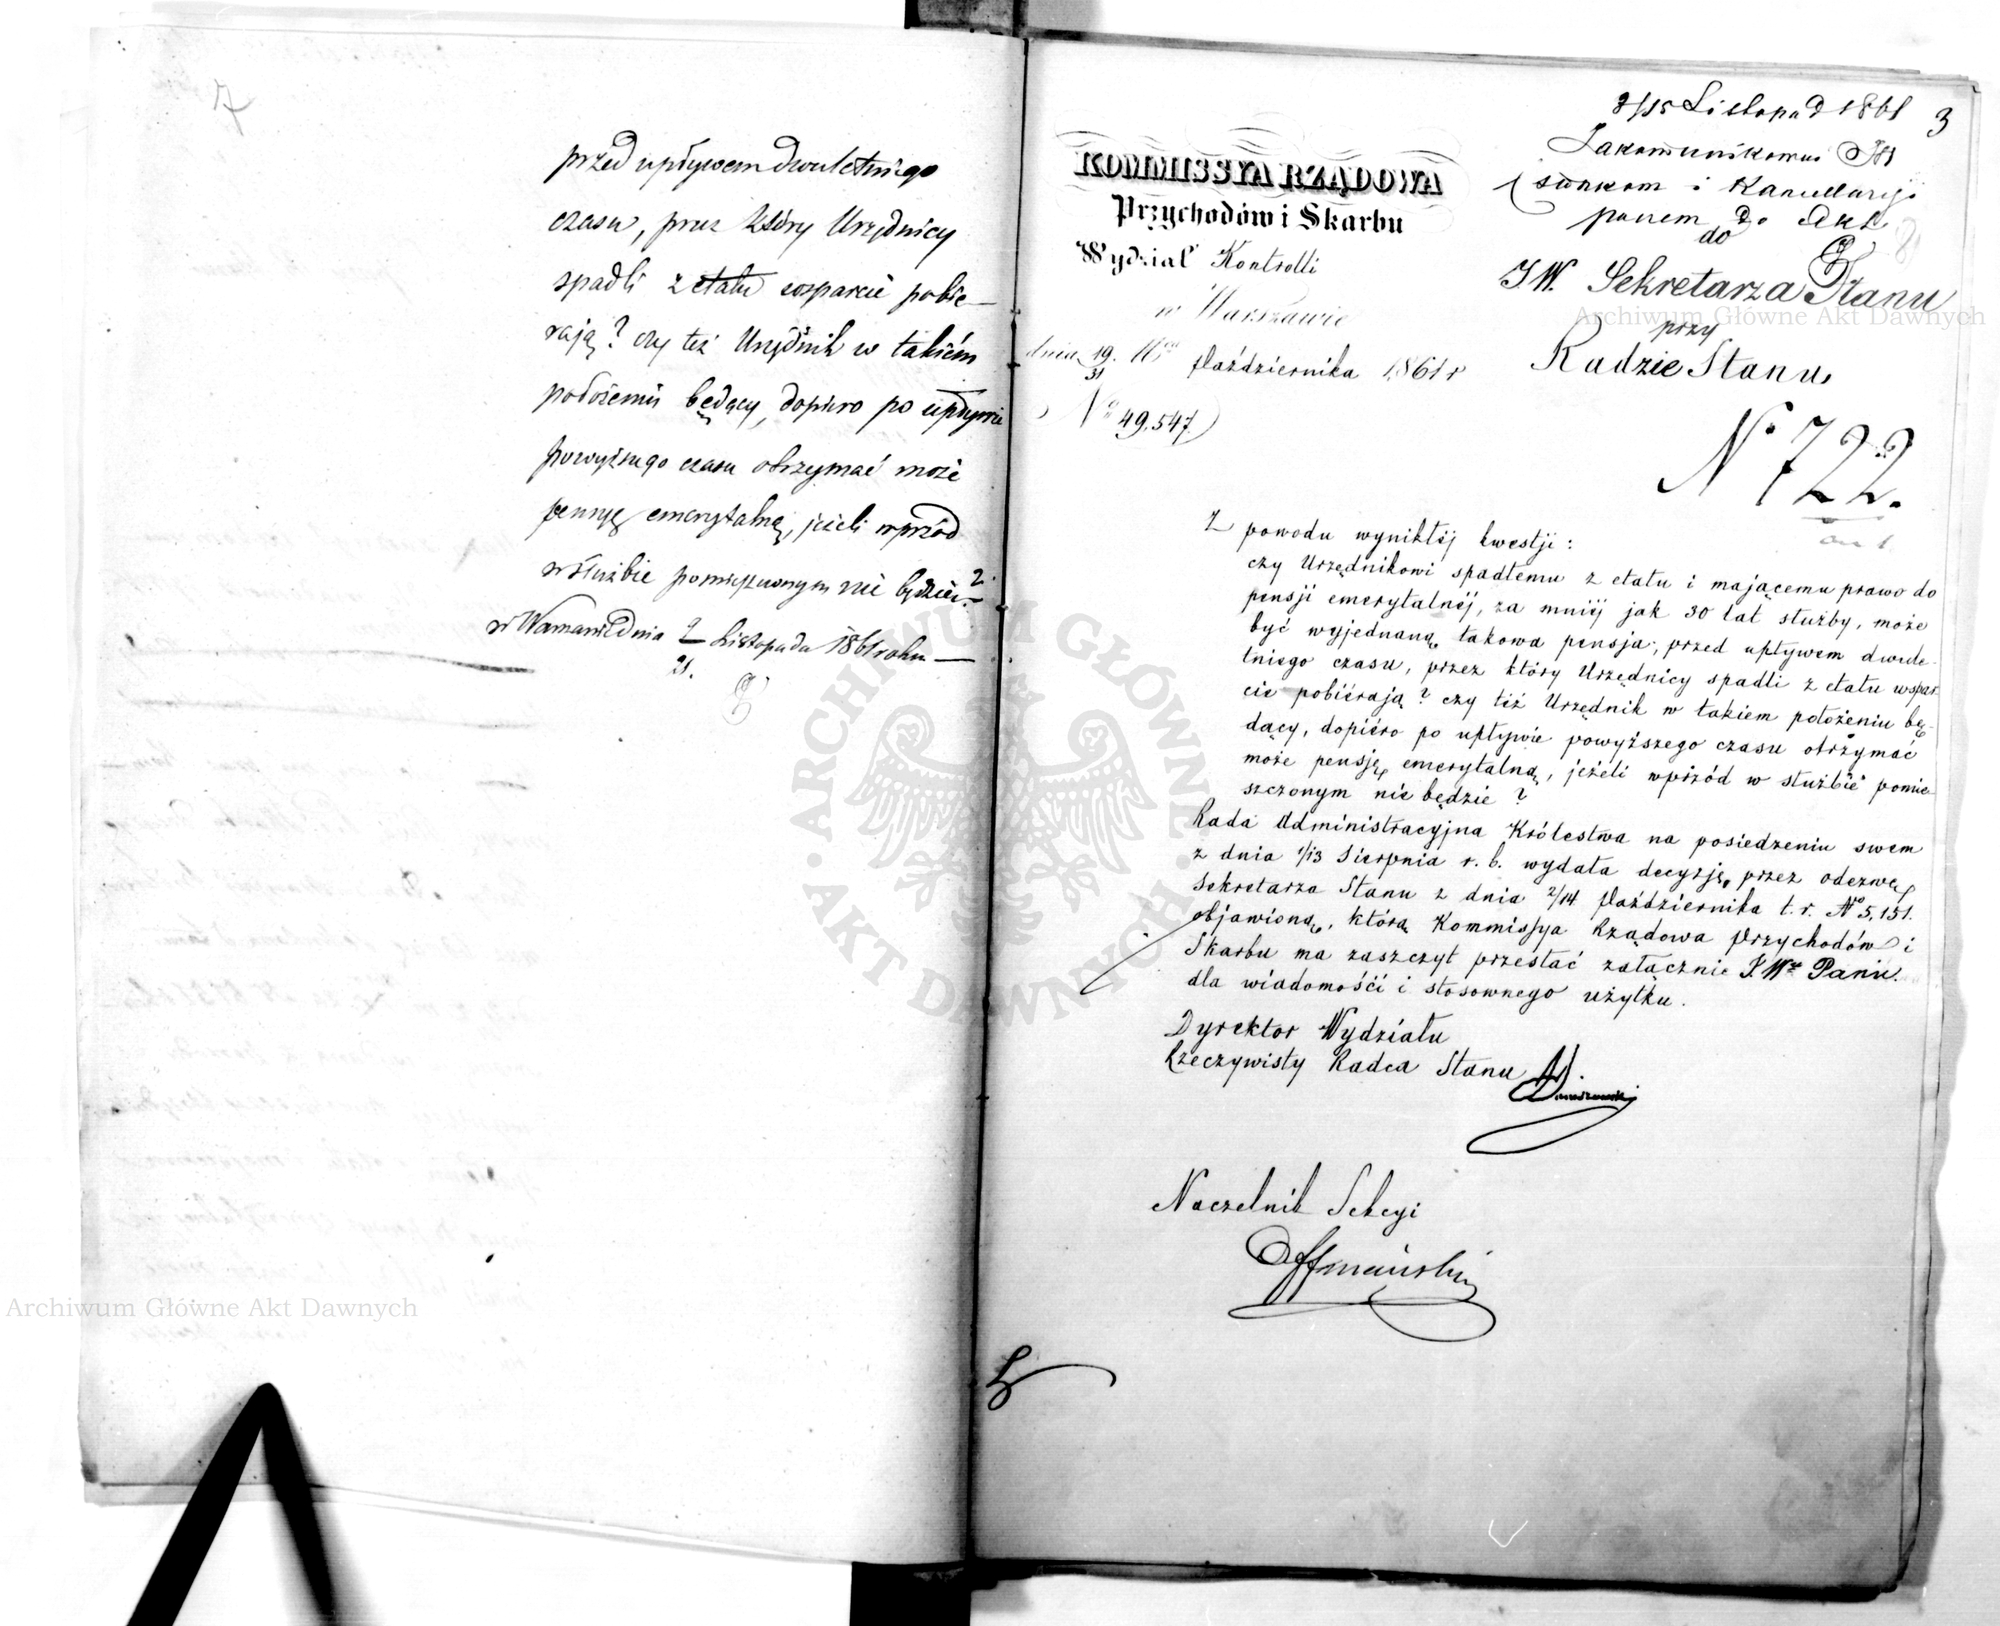 7
przed upływem dwuletniego
czasu, przez który Urzędnicy
spadli z etatu wsparcie pobie-
rają? czy też Urzędnik w takiém
położeniu będący, dopiero po upływie
powyższego czasu otrzymać może
pensyę emerytalną, jeżeli wprzód
w służbie pomieszczonym nie będzie?
w Warszawie dnia 9/21. Listopada 1861 roku
3
3/15 Listopad 1861
Zakomunikować
i Kancellaryi
poczem do Akt
KOMMISSYA RZĄDOWA
Przychodów i Skarbu
Wydział Kontrolli
w Warszawie
dnia 19/31 Października 1861 r
No 49,547.
do
J.W. Sekretarza Stanu
przy
Radzie Stanu
No 722.
Z powodu wynikłéj kwestji:
czy Urzędnikowi spadłemu z etatu i mającemu prawo do
pensji emerytalnéj, za mniéj jak 30 lat służby, może
być wyjednaną takowa pensja, przed upływem dwule-
tniego czasu, przez który Urzędnicy spadli z etatu wspar-
cie pobiérają? czy téż Urzędnik w takiem położeniu bę-
dący, dopiéro po upływie powyższego czasu otrzymać
może pensję emerytalną, jeżeli wprzód w służbie pomie-
szczonym nie będzie?
Rada Administracyjna Królestwa na posiedzeniu swem
z dnia 1/13 Sierpnia r. b. wydała decyzję, przez odezwę
Sekretarza Stanu z dnia 2/14 Października t. r. No 5,151.
objawioną, którą Kommissya Rządowa Przychodów i
Skarbu ma zaszczyt przesłać załącznie JWu Panu.
dla wiadomości i stosownego użytku.
Dyrektor Wydziału
Rzeczywisty Radca Stanu
Naczelnik Sekcyi
Archiwum Główne Akt Dawnych
Archiwum Główne Akt Dawnych
ARCHIWUM GŁÓWNE · AKT DAWNYCH ·